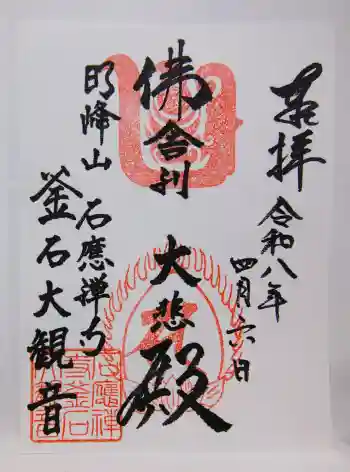 奉拝
令和八年
四月六日
佛舎利
大悲殿
明峰山
石應禅寺
釜石大観音